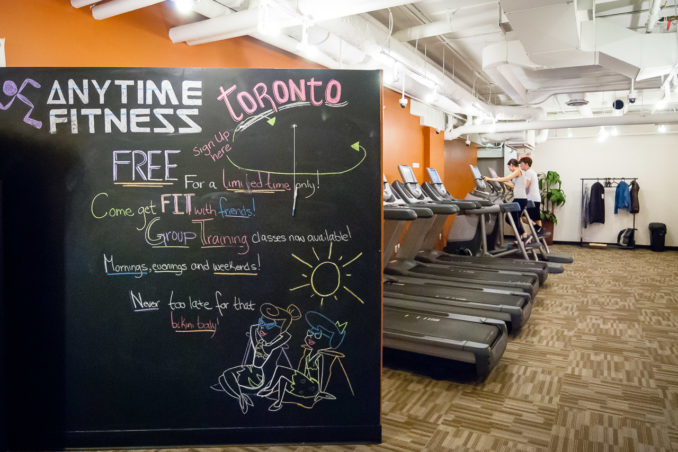 ANYTIME
FITNESS
TORONTO
Sign Up
here
FREE
For a limited time only!
Come get FIT with friends!
Group Training classes now available!
Mornings, evenings and weekends!
Never too late for that
bikini body!